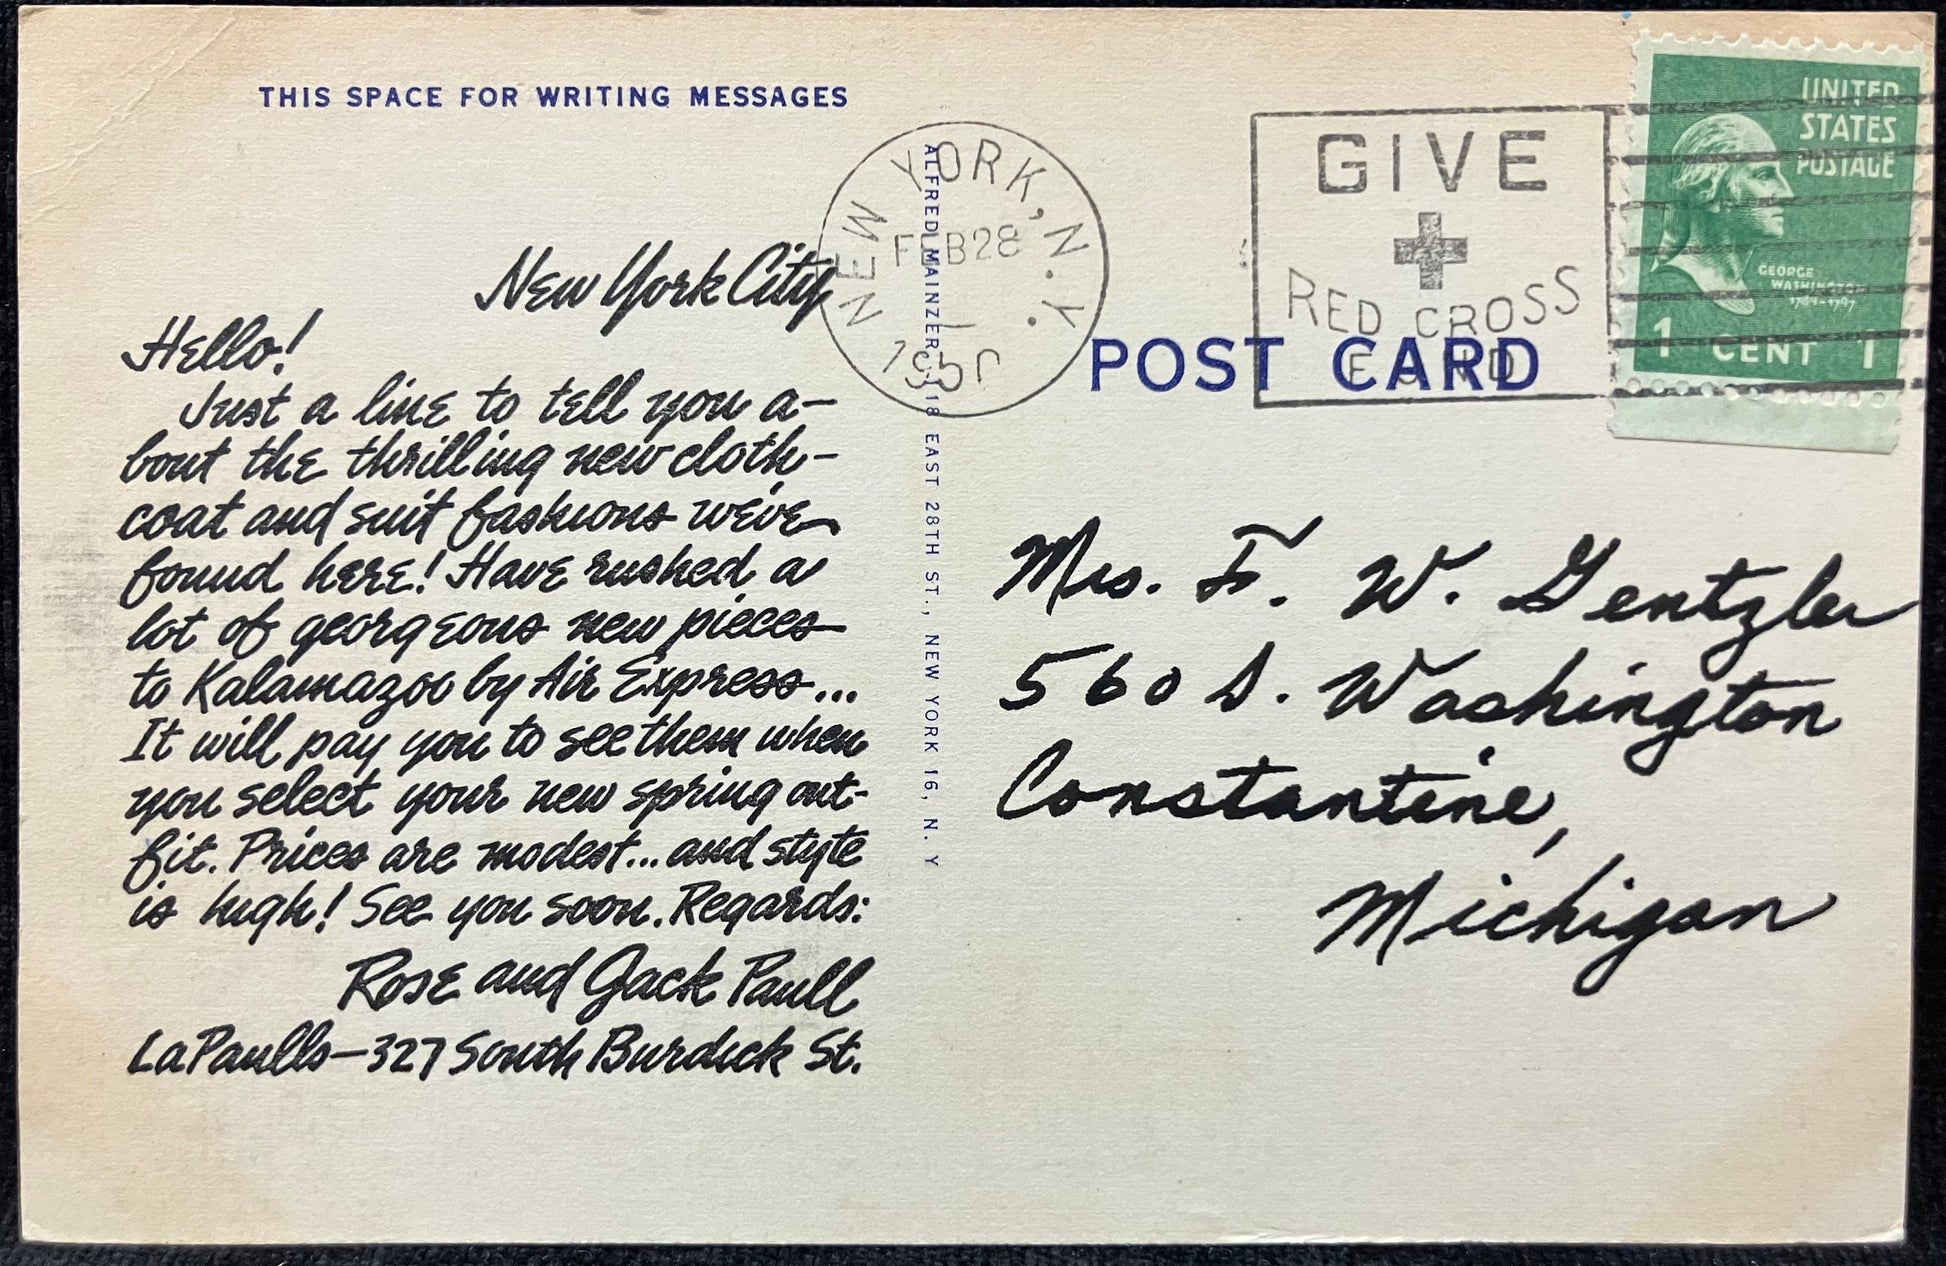 THIS SPACE FOR WRITING MESSAGES
New York City
Hello!
Just a line to tell you a-
bout the thrilling new cloth-
coat and suit fashions we've
found here! Have rushed a
lot of georgeous new pieces
to Kalamazoo by Air Express...
It will pay you to see them when
you select your new spring out-
fit. Prices are modest... and style
is high! See you soon. Regards:
Rose and Jack Paull
LaPaulls-327 South Burdick St.
ALFRED MAINZER, 118 EAST 28TH ST., NEW YORK 16, N. Y
NEW YORK, N. Y.
FEB 28
1950
GIVE
RED CROSS
FUND
UNITED
STATES
POSTAGE
GEORGE
WASHINGTON
1789-1797
1 CENT 1
POST CARD
Mrs. F. W. Gentzler
560 S. Washington
Constantine,
Michigan